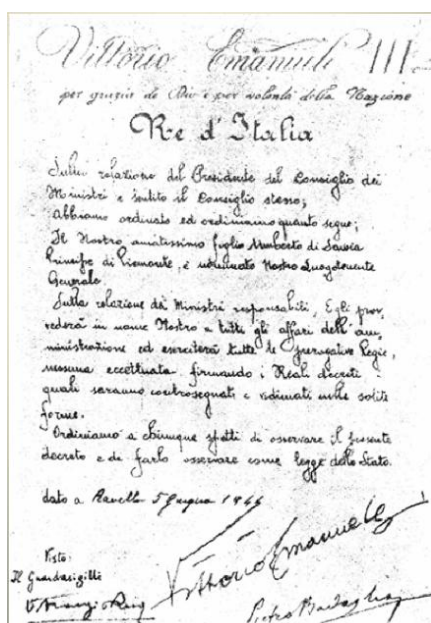 Vittorio Emanuele III
per grazia di Dio e per volontà della Nazione
Re d'Italia
Sulla relazione del Presidente del Consiglio dei
Ministri e sentito il Consiglio stesso;
Abbiamo ordinato ed ordiniamo quanto segue;
Il Nostro amatissimo figlio Umberto di Savoia
Principe di Piemonte, è nominato Nostro Luogotenente
Generale.
Sulla relazione dei Ministri responsabili, Egli prov
vederà in nome Nostro a tutti gli affari dell'am
ministrazione ed eserciterà tutte le prerogative Regie,
nessuna eccettuata firmando i Reali decreti i
quali saranno controsegnati e vidimati nelle solite
forme.
Ordiniamo a chiunque spetti di osservare il presente
decreto e di farlo osservare come legge dello Stato.
dato a Ravello 5 Giugno 1944
Vittorio Emanuele
Visto:
Il Guardasigilli
Pietro Badoglio